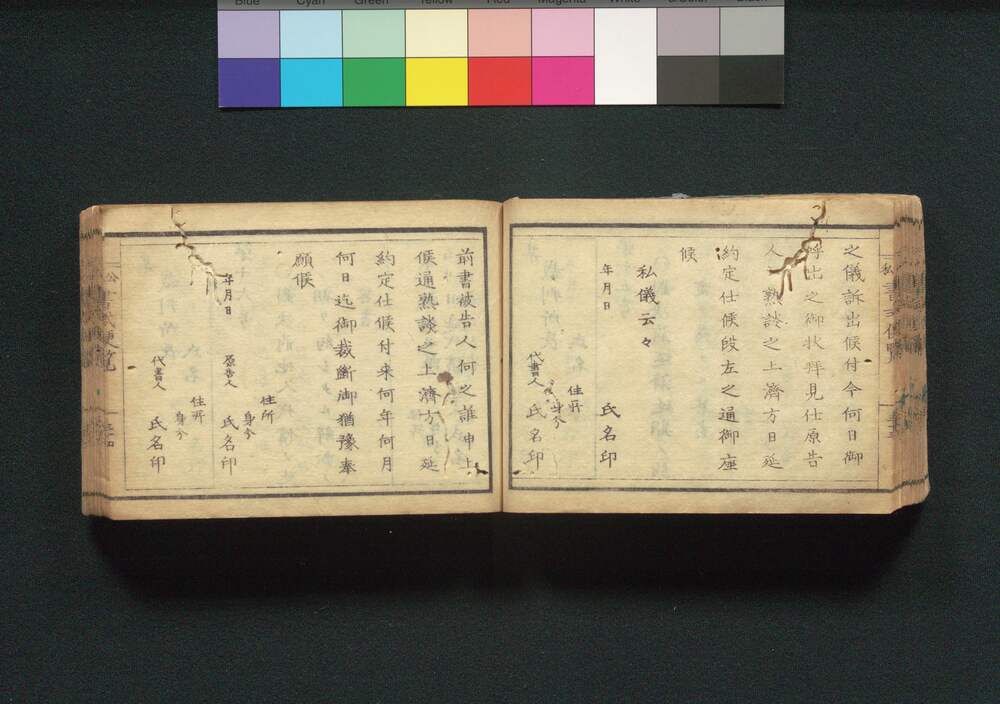 之儀訴出候付今何日御
呼出之御状拝見仕原告
人熟談之上濟方日延
約定仕候段左之通御座
候
私儀云々
年月日
氏名印
住所
身分
代書人
氏名印
前書被告人何之誰申上
候通熟談之上濟方日延
約定仕候付来何年何月
何日迄御裁断御猶豫奉
願候
年月日
住所
身分
原告人
氏名印
住所
身分
代書人
氏名印